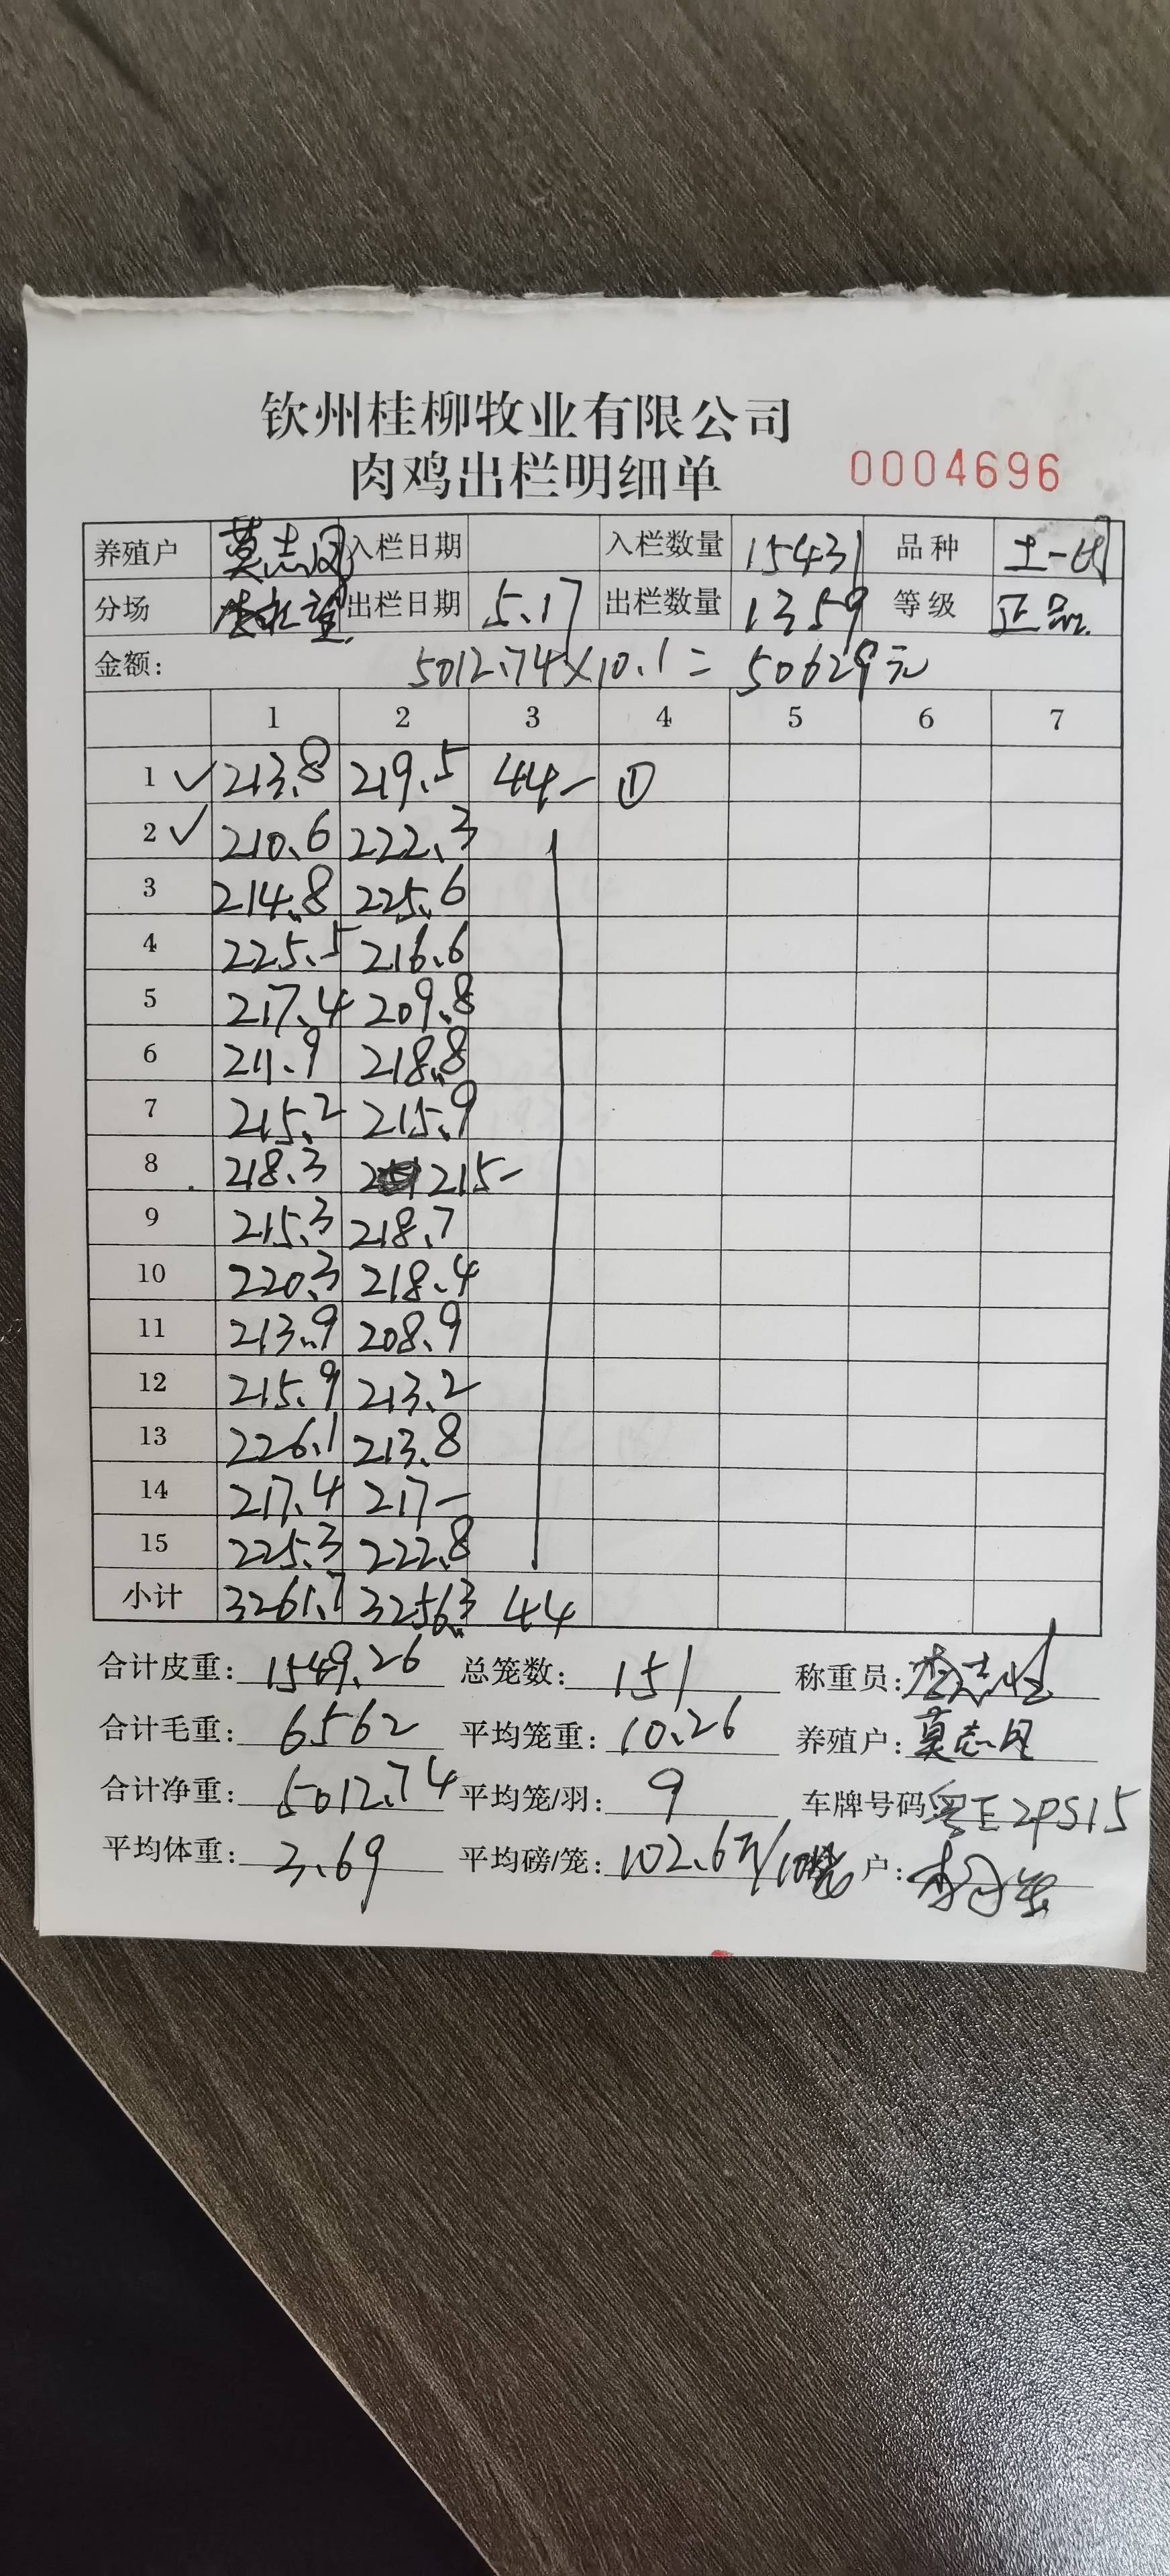 钦州桂柳牧业有限公司
肉鸡出栏明细单 0004696
养殖户 莫志凤 入栏日期 入栏数量 15431 品种 土一
分场 出栏日期 5.17 出栏数量 1359 等级 正品
金额: 5012.74×10.1=50629元
1 2 3 4 5 6 7
1 ✓ 213.8 219.5 44- ①
2 ✓ 210.6 222.3
3 214.8 225.6
4 225.5 216.6
5 217.4 209.8
6 211.9 218.8
7 215.2 215.9
8 218.3 215-
9 215.3 218.7
10 220.3 218.4
11 213.9 208.9
12 215.9 213.2
13 226.1 213.8
14 217.4 217-
15 225.3 222.8
小计 3261.7 3256.3 44
合计皮重: 1549.26 总笼数: 151 称重员:
合计毛重: 6562 平均笼重: 10.26 养殖户: 莫志凤
合计净重: 5012.74 平均笼/羽: 9 车牌号码 粤E2PS15
平均体重: 3.69 平均磅/笼: 102.6斤/10笼 户: